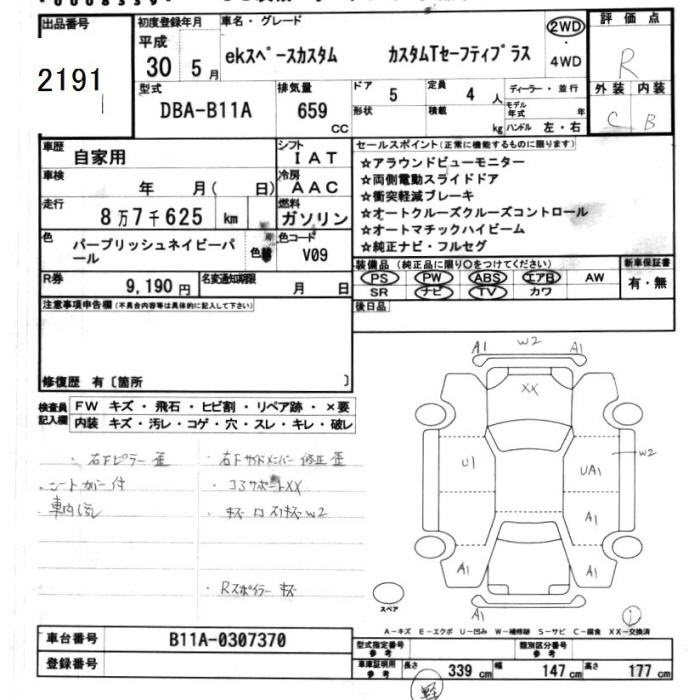 出品番号
2191
初度登録年月
平成
30 5月
車名・グレード
ekスペースカスタム カスタムTセーフティプラス
2WD
・
4WD
評価点
R
外装 内装
C B
型式
DBA-B11A
排気量
659
CC
ドア
5
定員
4 人
形状
積載
kg
ディーラー・並行
モデル年式 年
ハンドル 左・右
車歴
自家用
シフト
IAT
車検
年 月( 日)
冷房
AAC
走行
8万7千625 km
燃料
ガソリン
色
パープリッシュネイビーパール
色替
色コード
V09
R券
9,190円
名変通知期限
月 日
セールスポイント(正常に機能するものに限ります)
☆アラウンドビューモニター
☆両側電動スライドドア
☆衝突軽減ブレーキ
☆オートクルーズクルーズコントロール
☆オートマチックハイビーム
☆純正ナビ・フルセグ
装備品(純正品に限り○をつけてください)
PS PW ABS エアB AW
SR ナビ TV カワ
新車保証書
有・無
後日品
注意事項申告欄(不具合内容等は具体的に記入して下さい)
修復歴 有〔箇所 〕
検査員
記入欄
FW キズ・飛石・ヒビ割・リペア跡・×要
内装 キズ・汚レ・コゲ・穴・スレ・キレ・破レ
・右Fピラー歪
・シートカバー付
・右Fサイドメンバー修正歪
・コアサポートXX
・Rスポイラーキズ
A1 W2 A1
XX
U1
UA1
W2
A1
A1
A1
A1
スペア
A-キズ E-エクボ U-凹み W-補修跡 S-サビ C-腐食 XX-交換済
車台番号
B11A-0307370
登録番号
型式指定番号
参考
類別区分番号
参考
車庫証明用
参考
長さ 339 cm 幅 147 cm 高さ 177 cm
軽